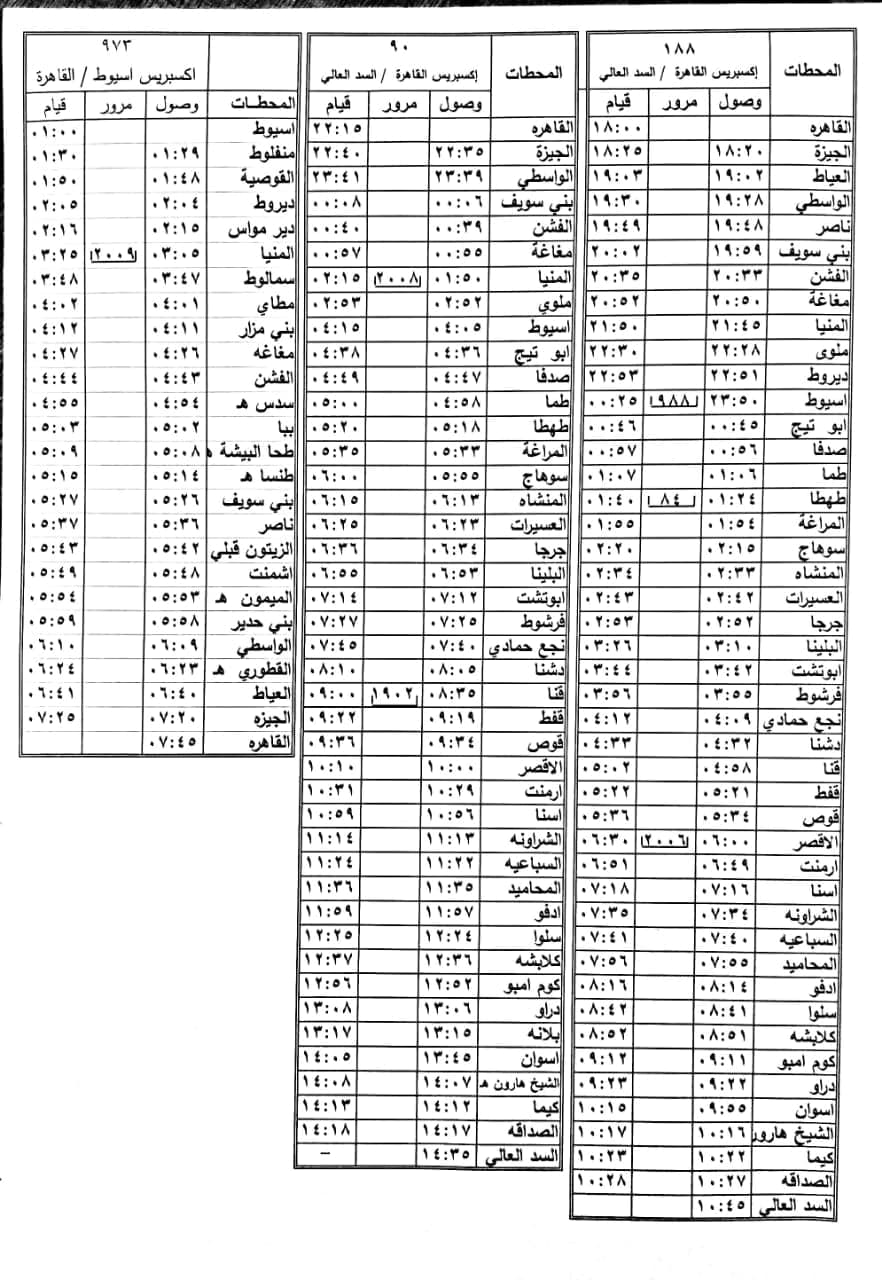 ١٨٨
المحطات | إكسبريس القاهرة / السد العالي
وصول | مرور | قيام
القاهره | | | ١٨:٠٠
الجيزة | ١٨:٢٠ | | ١٨:٢٥
العياط | ١٩:٠٢ | | ١٩:٠٣
الواسطي | ١٩:٢٨ | | ١٩:٣٠
ناصر | ١٩:٤٨ | | ١٩:٤٩
بني سويف | ١٩:٥٩ | | ٢٠:٠٢
الفشن | ٢٠:٣٣ | | ٢٠:٣٥
مغاغة | ٢٠:٥٠ | | ٢٠:٥٢
المنيا | ٢١:٤٥ | | ٢١:٥٠
ملوى | ٢٢:٢٨ | | ٢٢:٣٠
ديروط | ٢٢:٥١ | | ٢٢:٥٣
اسيوط | ٢٣:٥٠ | ٩٨٨ | ٠٠:٢٥
ابو تيج | ٠٠:٤٥ | | ٠٠:٤٦
صدفا | ٠٠:٥٦ | | ٠٠:٥٧
طما | ٠١:٠٦ | | ٠١:٠٧
طهطا | ٠١:٢٤ | ٨٤ | ٠١:٤٠
المراغة | ٠١:٥٤ | | ٠١:٥٥
سوهاج | ٠٢:١٥ | | ٠٢:٢٠
المنشاه | ٠٢:٣٣ | | ٠٢:٣٤
العسيرات | ٠٢:٤٢ | | ٠٢:٤٣
جرجا | ٠٢:٥٢ | | ٠٢:٥٣
البلينا | ٠٣:١٠ | | ٠٣:٢٦
ابوتشت | ٠٣:٤٢ | | ٠٣:٤٤
فرشوط | ٠٣:٥٥ | | ٠٣:٥٦
نجع حمادي | ٠٤:٠٩ | | ٠٤:١٢
دشنا | ٠٤:٣٢ | | ٠٤:٣٣
قنا | ٠٤:٥٨ | | ٠٥:٠٢
قفط | ٠٥:٢١ | | ٠٥:٢٢
قوص | ٠٥:٣٤ | | ٠٥:٣٦
الاقصر | ٠٦:٠٠ | ٢٠٠٦ | ٠٦:٣٠
ارمنت | ٠٦:٤٩ | | ٠٦:٥١
اسنا | ٠٧:١٦ | | ٠٧:١٨
الشراونه | ٠٧:٣٤ | | ٠٧:٣٥
السباعيه | ٠٧:٤٠ | | ٠٧:٤١
المحاميد | ٠٧:٥٥ | | ٠٧:٥٦
ادفو | ٠٨:١٤ | | ٠٨:١٦
سلوا | ٠٨:٤١ | | ٠٨:٤٢
كلابشه | ٠٨:٥١ | | ٠٨:٥٢
كوم امبو | ٠٩:١١ | | ٠٩:١٢
دراو | ٠٩:٢٢ | | ٠٩:٢٣
اسوان | ٠٩:٥٥ | | ١٠:١٥
الشيخ هارور | ١٠:١٦ | | ١٠:١٧
كيما | ١٠:٢٢ | | ١٠:٢٣
الصداقه | ١٠:٢٧ | | ١٠:٢٨
السد العالي | ١٠:٤٥
٩٠
المحطات | إكسبريس القاهرة / السد العالي
وصول | مرور | قيام
القاهره | | | ٢٢:١٥
الجيزة | ٢٢:٣٥ | | ٢٢:٤٠
الواسطي | ٢٣:٣٩ | | ٢٣:٤١
بني سويف | ٠٠:٠٦ | | ٠٠:٠٨
الفشن | ٠٠:٣٩ | | ٠٠:٤٠
مغاغة | ٠٠:٥٥ | | ٠٠:٥٧
المنيا | ٠١:٥٠ | ٢٠٠٨ | ٠٢:١٥
ملوي | ٠٢:٥٢ | | ٠٢:٥٣
اسيوط | ٠٤:٠٥ | | ٠٤:١٥
ابو تيج | ٠٤:٣٦ | | ٠٤:٣٨
صدفا | ٠٤:٤٧ | | ٠٤:٤٩
طما | ٠٤:٥٨ | | ٠٥:٠٠
طهطا | ٠٥:١٨ | | ٠٥:٢٠
المراغة | ٠٥:٣٣ | | ٠٥:٣٥
سوهاج | ٠٥:٥٥ | | ٠٦:٠٠
المنشاه | ٠٦:١٣ | | ٠٦:١٥
العسيرات | ٠٦:٢٣ | | ٠٦:٢٥
جرجا | ٠٦:٣٤ | | ٠٦:٣٦
البلينا | ٠٦:٥٣ | | ٠٦:٥٥
ابوتشت | ٠٧:١٢ | | ٠٧:١٤
فرشوط | ٠٧:٢٥ | | ٠٧:٢٧
نجع حمادي | ٠٧:٤٠ | | ٠٧:٤٥
دشنا | ٠٨:٠٥ | | ٠٨:١٠
قنا | ٠٨:٣٥ | ١٩٠٢ | ٠٩:٠٠
قفط | ٠٩:١٩ | | ٠٩:٢٢
قوص | ٠٩:٣٤ | | ٠٩:٣٦
الاقصر | ١٠:٠٠ | | ١٠:١٠
ارمنت | ١٠:٢٩ | | ١٠:٣١
اسنا | ١٠:٥٦ | | ١٠:٥٩
الشراونه | ١١:١٣ | | ١١:١٤
السباعيه | ١١:٢٢ | | ١١:٢٤
المحاميد | ١١:٣٥ | | ١١:٣٦
ادفو | ١١:٥٧ | | ١١:٥٩
سلوا | ١٢:٢٤ | | ١٢:٢٥
كلابشه | ١٢:٣٦ | | ١٢:٣٧
كوم امبو | ١٢:٥٢ | | ١٢:٥٦
دراو | ١٣:٠٦ | | ١٣:٠٨
بلانه | ١٣:١٥ | | ١٣:١٧
اسوان | ١٣:٤٥ | | ١٤:٠٥
الشيخ هارون هـ | ١٤:٠٧ | | ١٤:٠٨
كيما | ١٤:١٢ | | ١٤:١٣
الصداقه | ١٤:١٧ | | ١٤:١٨
السد العالي | ١٤:٣٥ | | –
٩٧٣
اكسبريس اسيوط / القاهرة
المحطــات | وصول | مرور | قيام
اسيوط | | | ٠١:٠٠
منفلوط | ٠١:٢٩ | | ٠١:٣٠
القوصية | ٠١:٤٨ | | ٠١:٥٠
ديروط | ٠٢:٠٤ | | ٠٢:٠٥
دير مواس | ٠٢:١٥ | | ٠٢:١٦
المنيا | ٠٣:٠٥ | ٢٠٠٩ | ٠٣:٢٥
سمالوط | ٠٣:٤٧ | | ٠٣:٤٨
مطاي | ٠٤:٠١ | | ٠٤:٠٢
بني مزار | ٠٤:١١ | | ٠٤:١٢
مغاغه | ٠٤:٢٦ | | ٠٤:٢٧
الفشن | ٠٤:٤٣ | | ٠٤:٤٤
سدس هـ | ٠٤:٥٤ | | ٠٤:٥٥
ببا | ٠٥:٠٢ | | ٠٥:٠٣
طحا البيشة ه | ٠٥:٠٨ | | ٠٥:٠٩
طنسا هـ | ٠٥:١٤ | | ٠٥:١٥
بني سويف | ٠٥:٢٦ | | ٠٥:٢٧
ناصر | ٠٥:٣٦ | | ٠٥:٣٧
الزيتون قبلي | ٠٥:٤٢ | | ٠٥:٤٣
اشمنت | ٠٥:٤٨ | | ٠٥:٤٩
الميمون هـ | ٠٥:٥٣ | | ٠٥:٥٤
بني حدير | ٠٥:٥٨ | | ٠٥:٥٩
الواسطي | ٠٦:٠٩ | | ٠٦:١٠
القطوري هـ | ٠٦:٢٣ | | ٠٦:٢٤
العياط | ٠٦:٤٠ | | ٠٦:٤١
الجيزه | ٠٧:٢٠ | | ٠٧:٢٥
القاهره | ٠٧:٤٥